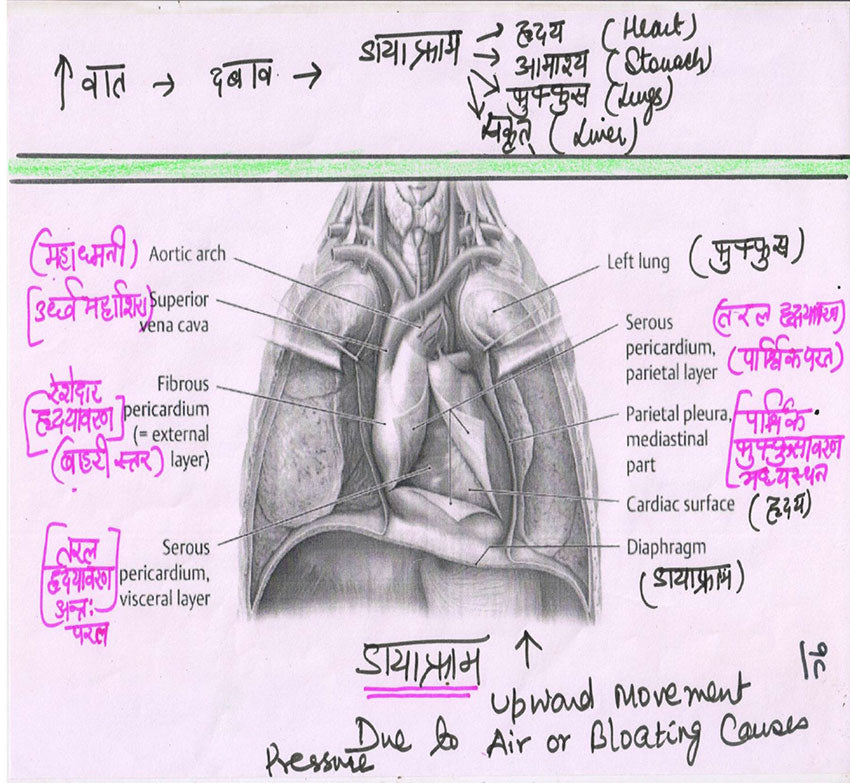 ↑ वात → दबाव → डायाफ्राम → हृदय (Heart)
→ आमाश्य (Stomach)
→ फुफ्फुस (Lungs)
→ यकृत् (Liver)
(महाधमनी) Aortic arch
(उर्ध्व महाशिरा) Superior
vena cava
रेशेदार
[हृदयावरण]
(बाहरी स्तर)
Fibrous
pericardium
(= external
layer)
[तरल
हृदयावरण
अन्तः
परल
Serous
pericardium,
visceral layer
Left lung (फुफ्फुस)
Serous
pericardium,
parietal layer
(तरल हृदयावरण)
(पार्श्विक परत)
Parietal pleura,
mediastinal
part
[पार्श्विक
फुफ्फुसावरण
मध्यस्थन
Cardiac surface (हृदय)
Diaphragm
(डायाफ्राम)
डायाफ्राम ↑
Upward Movement
Due to Air or Bloating Causes
Pressure